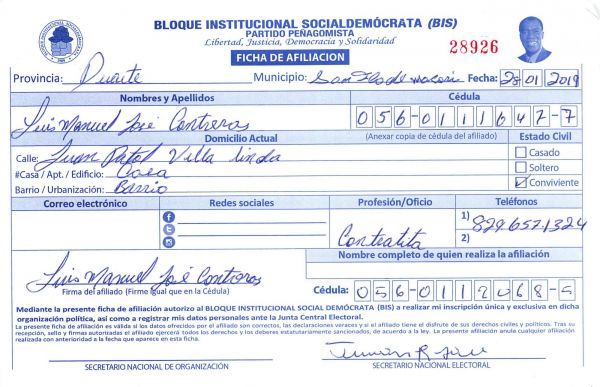 BLOQUE INSTITUCIONAL SOCIALDEMÓCRATA (BIS)
PARTIDO PEÑAGOMISTA
Libertad, Justicia, Democracia y Solidaridad
28926
FICHA DE AFILIACION
Provincia: Duarte Municipio: San Fco de macoris Fecha: 25 01 2019
Nombres y Apellidos Cédula
Luis Manuel José Contreras 056-0111647-7
Domicilio Actual (Anexar copia de cédula del afiliado) Estado Civil
Calle: Juan Villa linda Casado
#Casa / Apt. / Edificio: Casa Soltero
Barrio / Urbanización: Barrio Conviviente
Correo electrónico Redes sociales Profesión/Oficio Teléfonos
1) 829.657.1324
Contratita 2)
Nombre completo de quien realiza la afiliación
Luis Manuel José Contreras
Firma del afiliado (Firme igual que en la Cédula) Cédula: 056-0112068-5
Mediante la presente ficha de afiliación autorizo al BLOQUE INSTITUCIONAL SOCIAL DEMÓCRATA (BIS) a realizar mi inscripción única y exclusiva en dicha
organización política, así como a registrar mis datos personales ante la Junta Central Electoral.
La presente ficha de afiliación es válida si los datos ofrecidos por el afiliado son correctos, las declaraciones veraces y si el afiliado tiene el disfrute de sus derechos civiles y políticos. Tras su
recepción, sello y firmas autorizadas el afiliado ejercerá todos los derechos y los deberes estatutariamente sancionados, de acuerdo a la ley. La presente afiliación anula cualquier afiliación
realizada con anterioridad a la fecha que aparece en esta ficha.
SECRETARIO NACIONAL DE ORGANIZACIÓN SECRETARIO NACIONAL ELECTORAL